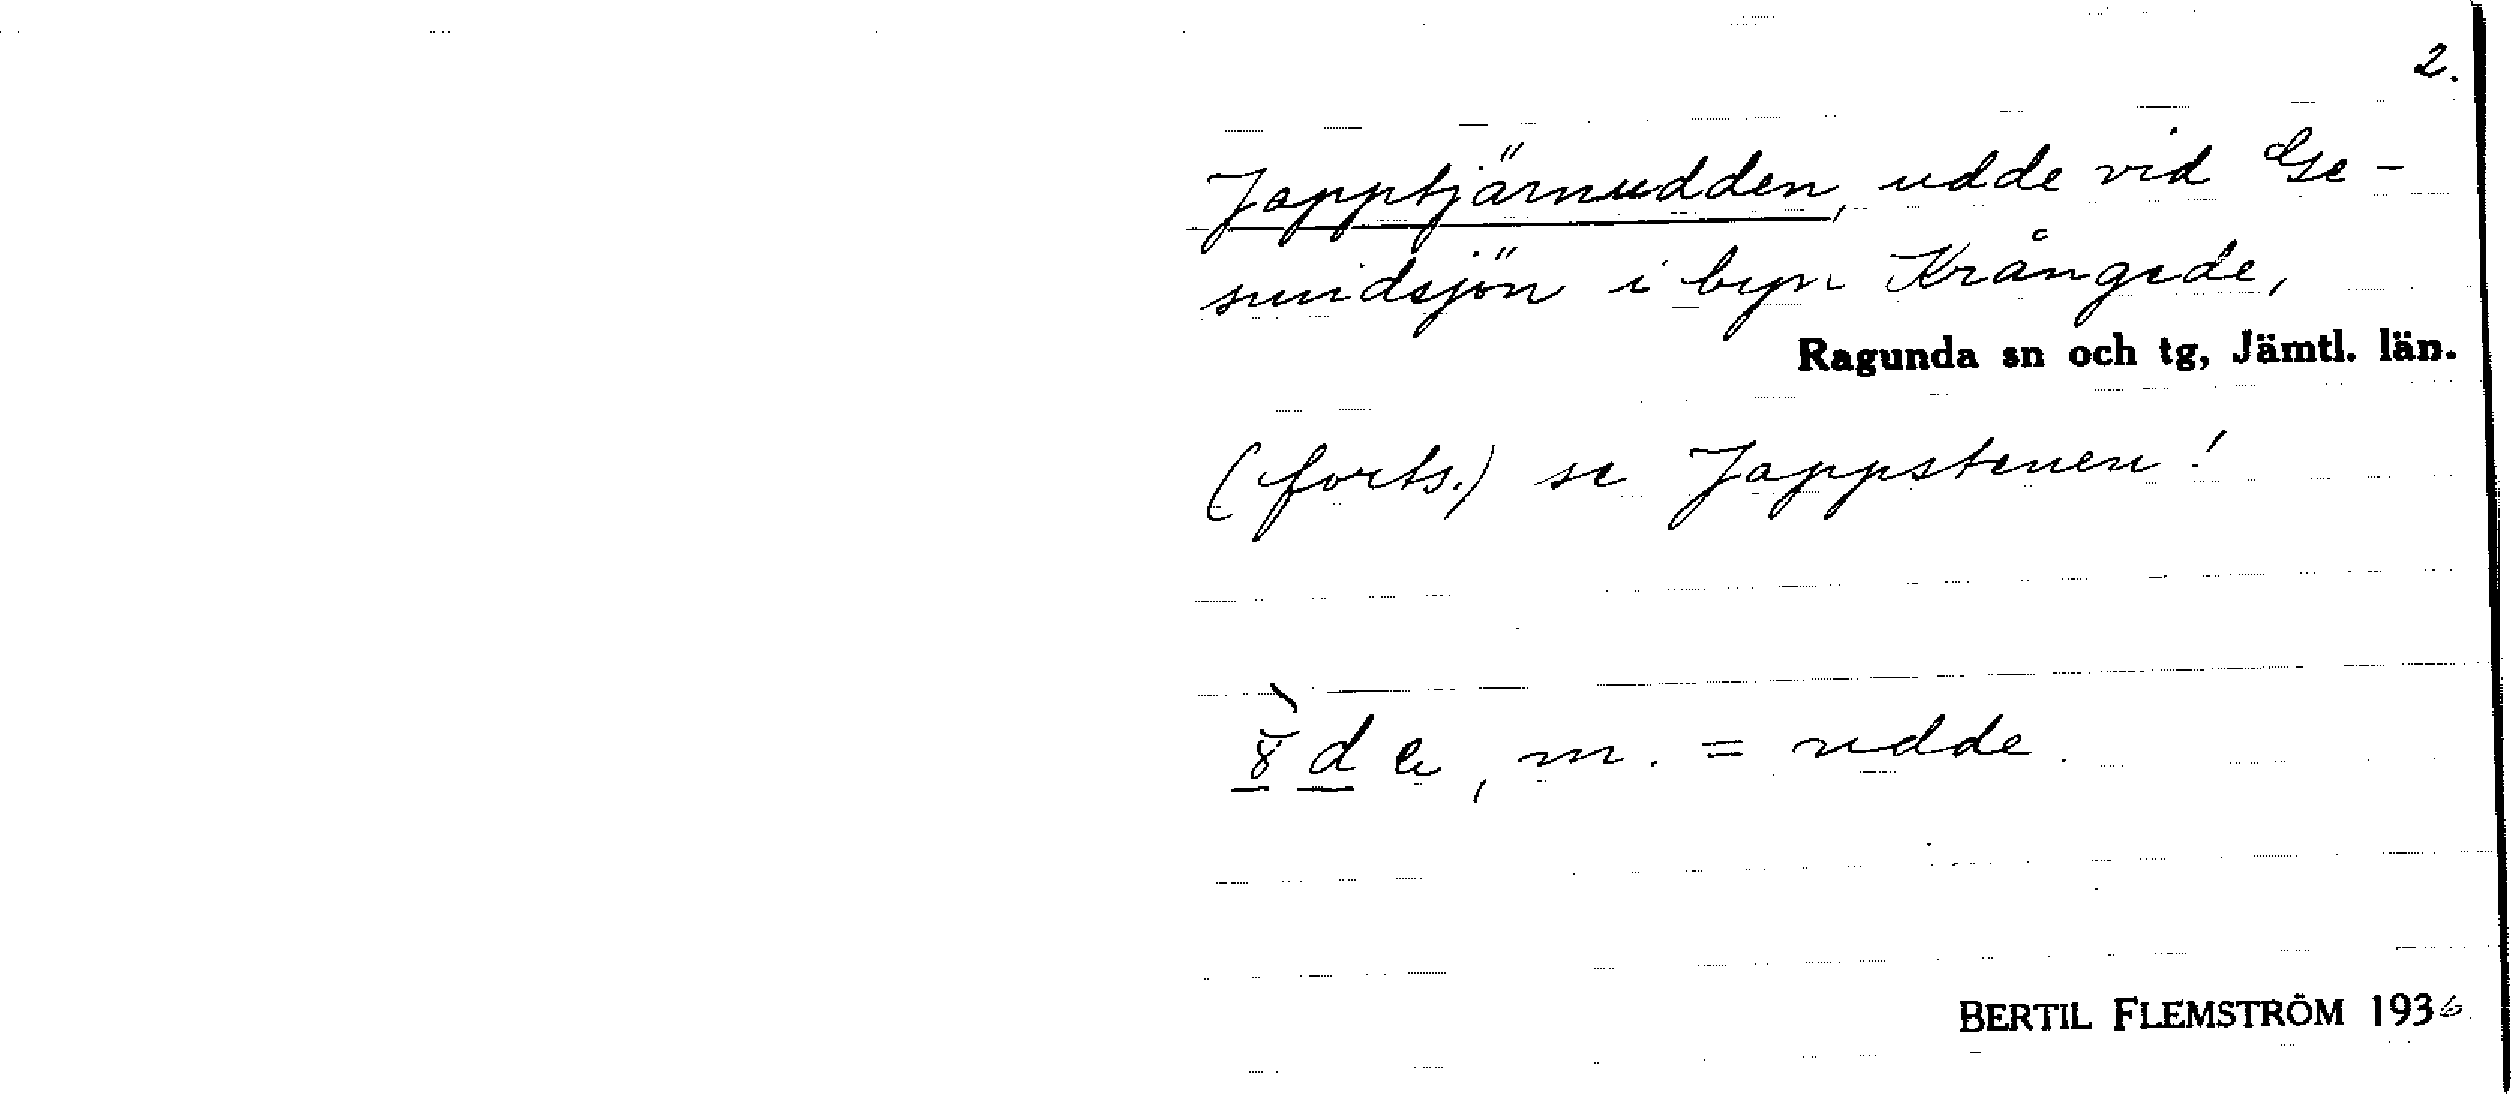 2.
Japptjärnudden, udde vid Ge-
sundsjön i byn Krångede,
Ragunda sn och tg, Jämtl. län.
(forts.) se Jappstenen!
m. = udde.
BERTIL FLEMSTRÖM 1936